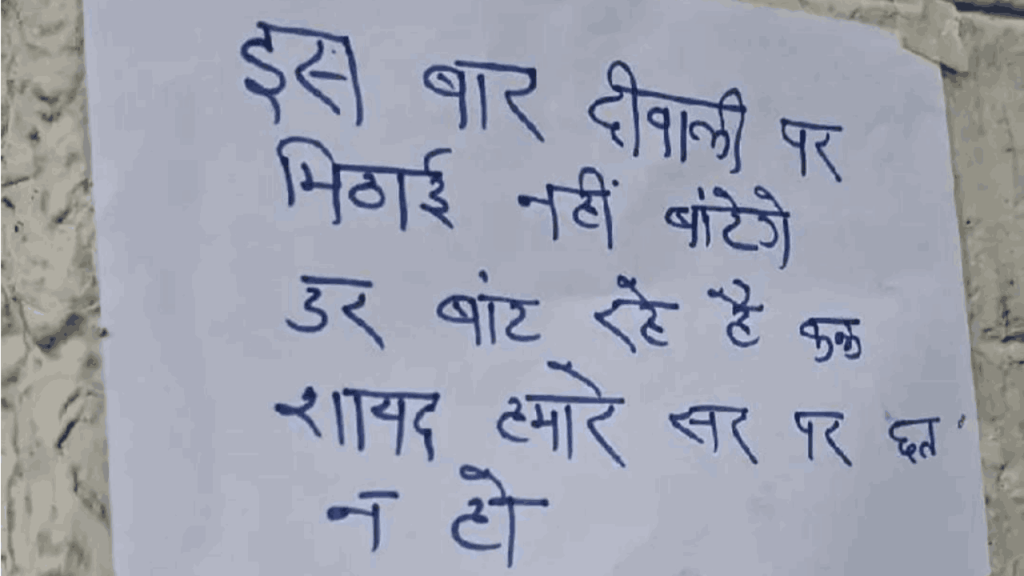 इस बार दीवाली पर
मिठाई नहीं बांटेगे
डर बांट रहे है कल
शायद हमारे सर पर छत
न हो